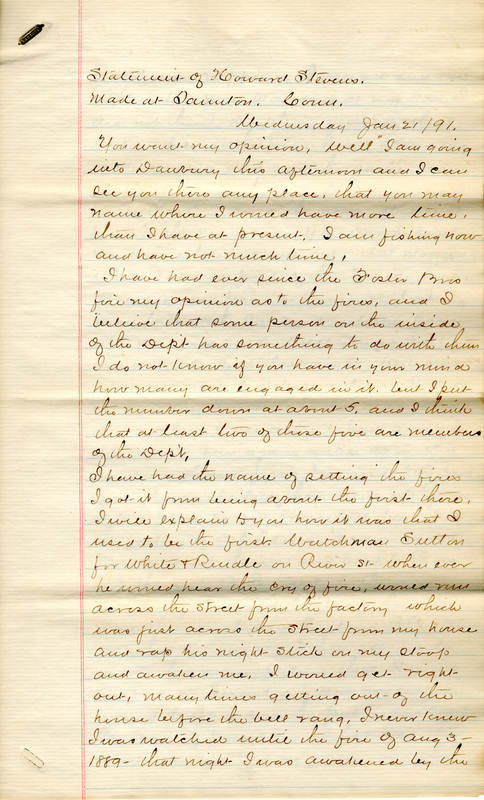 Statement of Howard Stevens.
Made at Taunton. Conn.
Wednesday Jan 21/91.
"You want my opinion, Well" I am going
into Danbury this afternoon and I can
see you there any place, that you may
name where I would have more time,
than I have at present. I am fishing now
and have not much time,
I have had ever since the Foster Bros
fire my opinion as to the fires, and I
believe that some person on the inside
of the Dept has something to do with them
I do not know if you have in your mind
how many are engaged in it. but I put
the number down at about 5, and I think
that at least two of those five are members
of the Dept,
I have had the name of setting the fires
I got it from being about the first there.
I will explain to you how it was that I
used to be the first. Watchman Sutton
for White & Rundle on River St- when ever
he would hear the cry of fire, would run
across the street from the factory which
was just across the street from my house
and rap his night stick on my stoop
and awaken me, I would get right
out, many times getting out of the
house before the bell rang, I never knew
I was watched until the fire of Aug 3-
1889- that night I was awakened by the